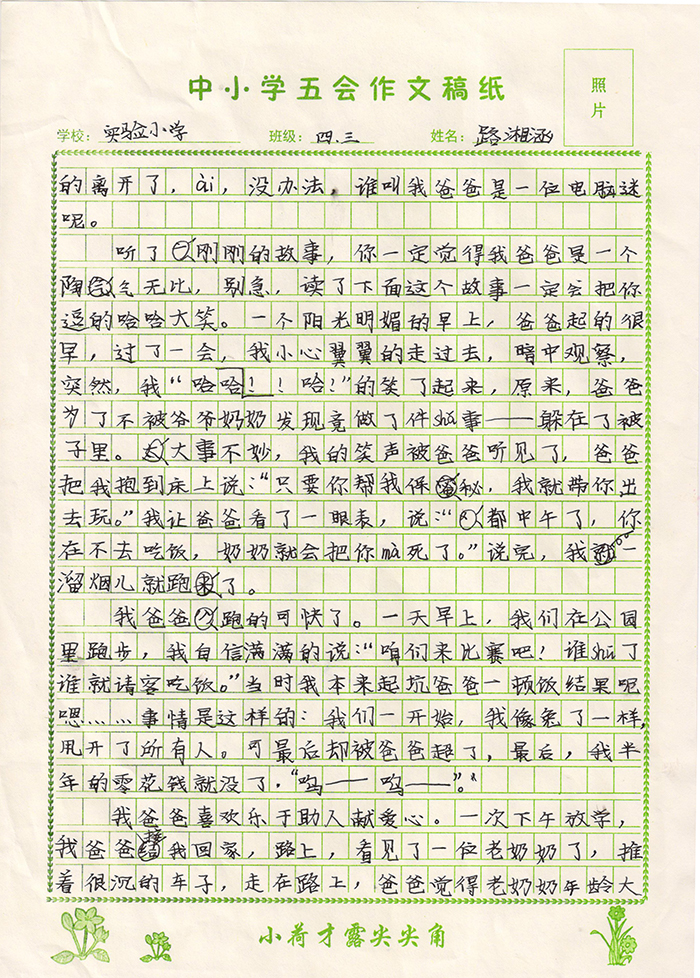 中小学五会作文稿纸
照片
学校：实验小学 班级：四.三 姓名：路湘涵
的离开了，ài，没办法，谁叫我爸爸是一位电脑迷
呢。
听了刚刚的故事，你一定觉得我爸爸是一个
陶气无比，别急，读了下面这个故事一定会把你
逗的哈哈大笑。一个阳光明媚的早上，爸爸起的很
早，过了一会，我小心翼翼的走过去，暗中观察，
突然，我“哈哈！！哈！”的笑了起来，原来，爸爸
为了不被爷爷奶奶发现竟做了件shǎ事——躲在了被
子里。大事不妙，我的笑声被爸爸听见了，爸爸
把我抱到床上说：“只要你帮我保秘，我就带你出
去玩。”我让爸爸看了一眼表，说：“都中午了，你
在不去吃饭，奶奶就会把你mà死了。”说完，我一
溜烟儿就跑了。
我爸爸跑的可快了。一天早上，我们在公园
里跑步，我自信满满的说：“咱们来比赛吧！谁shū了
谁就请客吃饭。”当时我本来起坑爸爸一顿饭结果呢
嗯……事情是这样的：我们一开始，我像兔了一样，
甩开了所有人。可最后却被爸爸起了，最后，我半
年的零花钱就没了.“呜——呜——”。“
我爸爸喜欢乐于助人献爱心。一次下午放学，
我爸爸接我回家，路上，看见了一位老奶奶了，推
着很沉的车子，走在路上，爸爸觉得老奶奶年龄大
小荷才露尖尖角